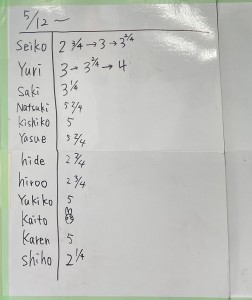 5/12 ～
Seiko 2 3/4 → 3 → 3 2/4
Yuri 3 → 3 2/4 → 4
Saki 3 1/4
Natsuki 5 2/4
Kishiko 5
Yasue 5 2/4
hide 2 3/4
hiroo 2 3/4
Yukiko 5
Kaito
Karen 5
Shiho 2 1/4